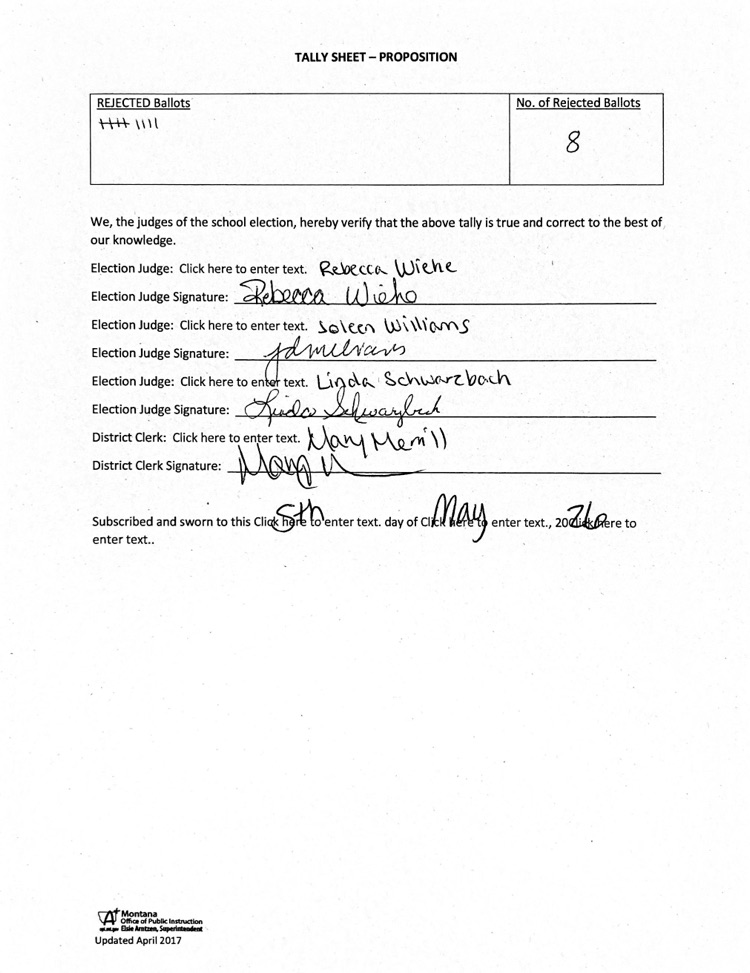 TALLY SHEET – PROPOSITION
REJECTED Ballots
No. of Rejected Ballots
8
We, the judges of the school election, hereby verify that the above tally is true and correct to the best of
our knowledge.
Election Judge: Click here to enter text. Rebecca Wiehe
Election Judge Signature: Rebecca Wiehe
Election Judge: Click here to enter text. Joleen Williams
Election Judge Signature:
Election Judge: Click here to enter text. Linda Schwarzbach
Election Judge Signature: Linda Schwarzbach
District Clerk: Click here to enter text. Mary Merrill
District Clerk Signature: Mary M
Subscribed and sworn to this Click here to enter text. 5th day of Click here to enter text., May 20Click here to 26
enter text..
Montana
Office of Public Instruction
Elsie Arntzen, Superintendent
Updated April 2017